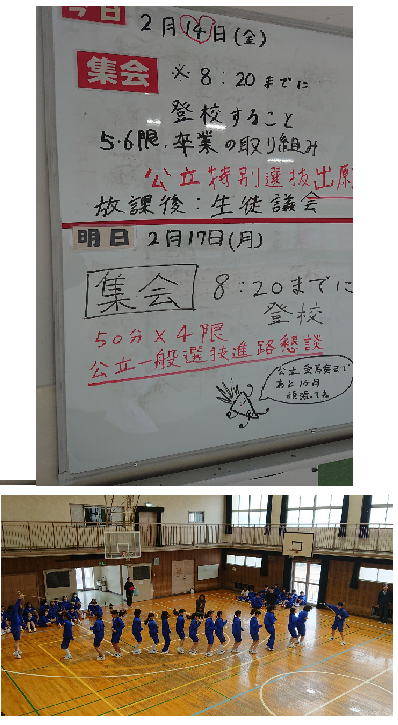 今日 2月14日(金)
集会 ※8:20までに
登校すること
5・6限、卒業の取り組み
公立特別選抜出願
放課後:生徒議会
明日 2月17日(月)
集会 8:20までに
登校
50分×4限
公立一般選抜進路懇談
あと